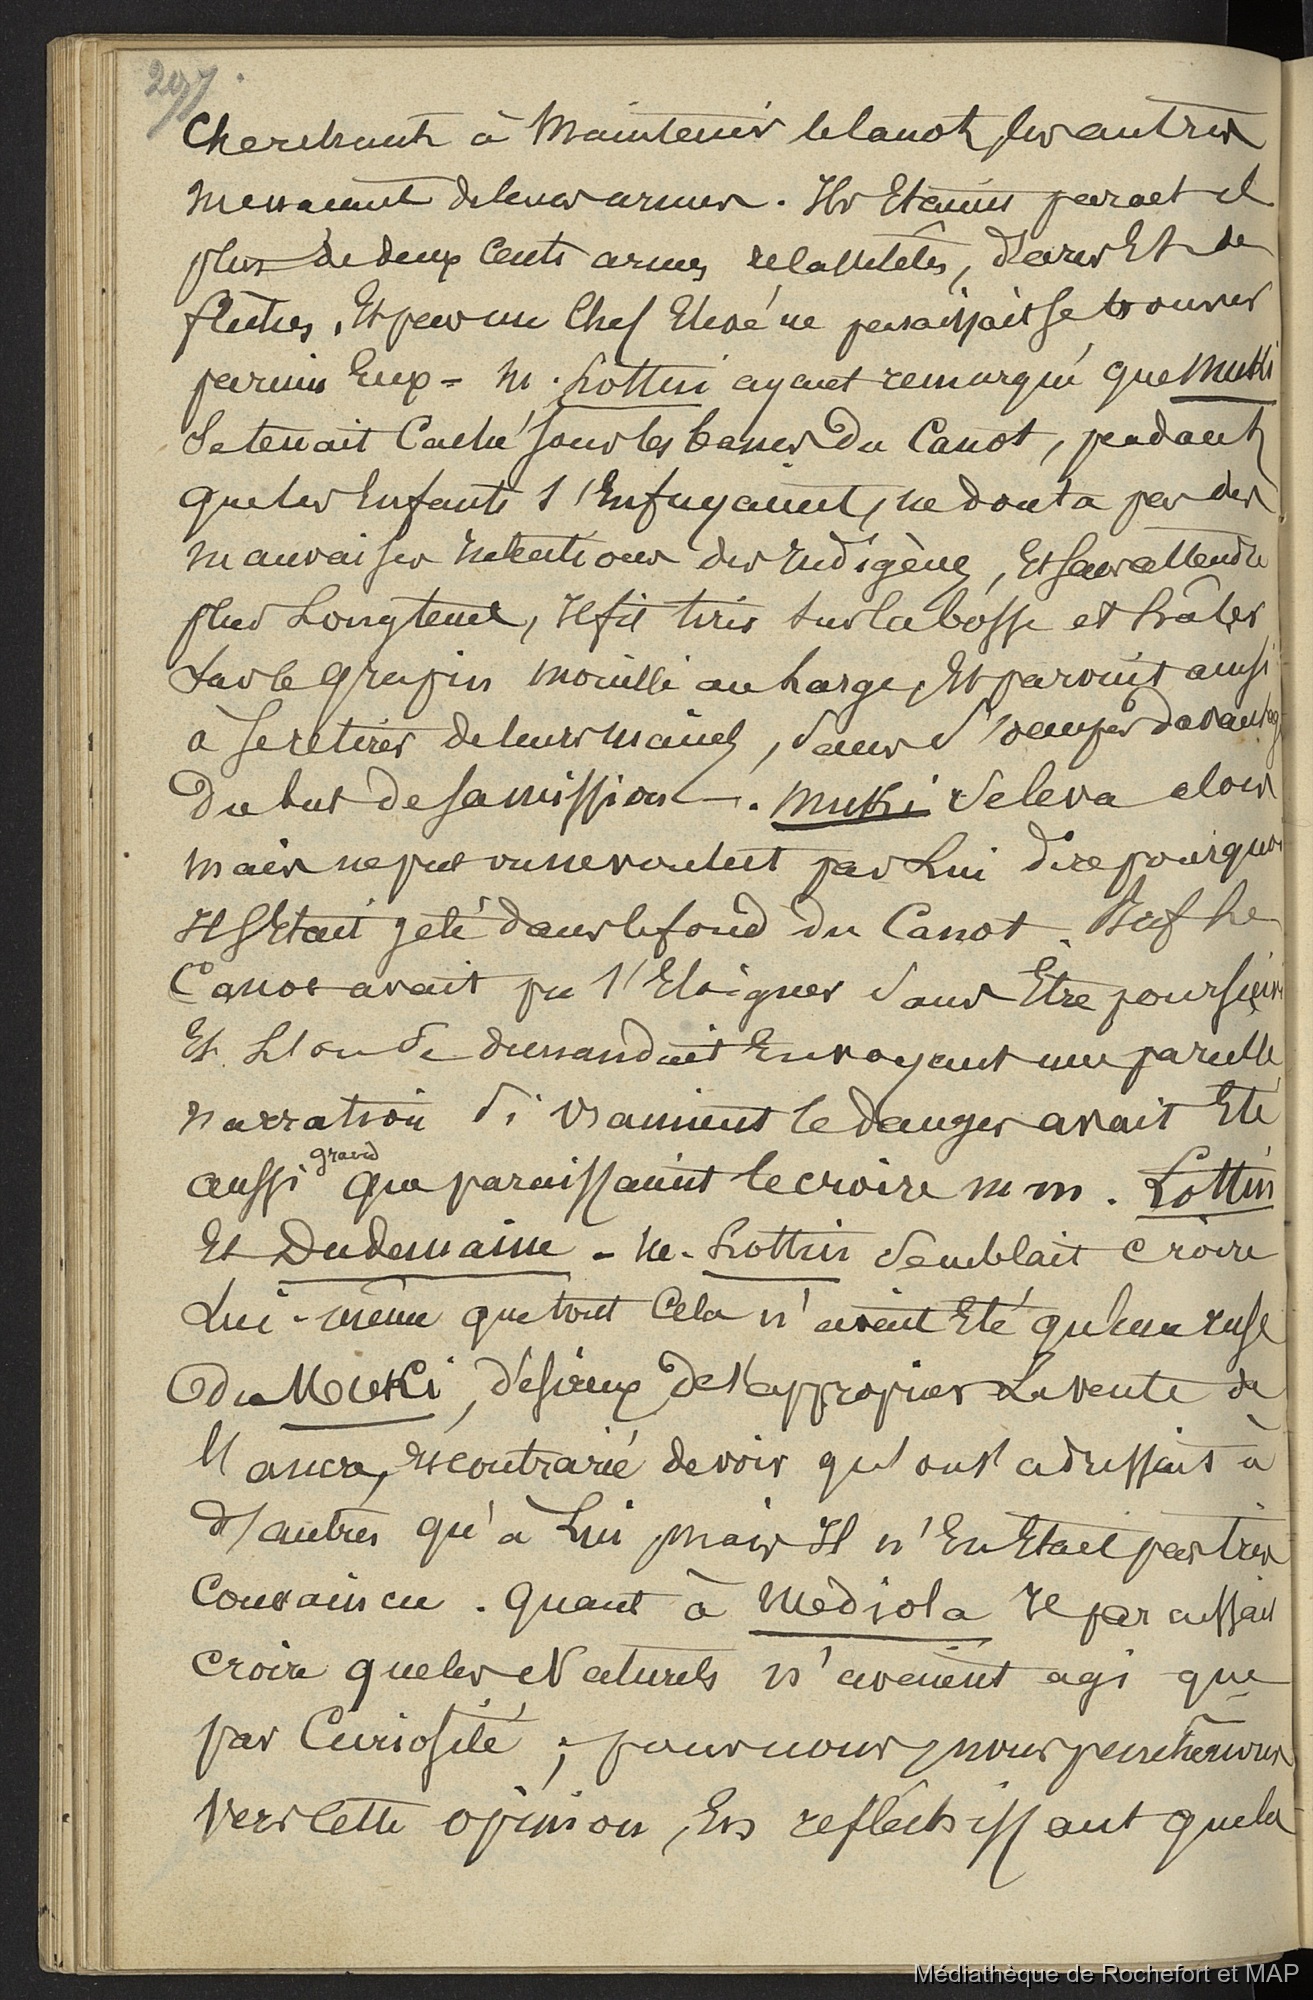 297.
Cherchant à Maintenir le canot, les autres
menacant de leurs armes. Ils Etaient parait il
plus de deux Cents armés de casse têtes, d'arcs Et de
flêches, Et pas un Chef Elevé ne paraissait se trouver
parmis Eux = M. Lottin ayant remarqué que Muki
Se tenait Caché sous les bancs Du Canot, pendant
que les Enfants s'Enfuyaient, ne douta pas des
mauvaises Intentions des Indigènes, Et sans attendre
plus Longtems, Il fit tirer sur la bosse et hâler
sur le grapin mouillé au large, Et parvint aussi
à se retirer de leurs mains, sans s'occuper davantage
Du but de sa mission -. Muki se leva alors
mais ne put ou ne voulut pas Lui dire pourquoi
Il s'Etait jeté dans le fond du Canot. Bref Le
Canot avait pu s'Eloigner sans Etre poursuivi
Et L'on Se demandait En voyant une pareille
narration si vraiment le danger avait Eté
aussi grand que paraissaient le croire m m. Lottin
Et Dudemaine - M. Lottin semblait croire
Lui-même que tout Cela n'avait Eté qu'une ruse
du Muki, désireux de s'approprier La vente de
l'ancre, Et contrarié de voir qu'on s'adressait à
d'autres qu'à Lui, mais Il n'En Etait pas très
Convaincu. Quant à Mediola Il paraissait
croire que les Naturels n'avaient agi que
par Curiosité ; pour nous, nous pencherions
vers cette opinion, En reflêchissant que la
Médiathèque de Rochefort et MAP